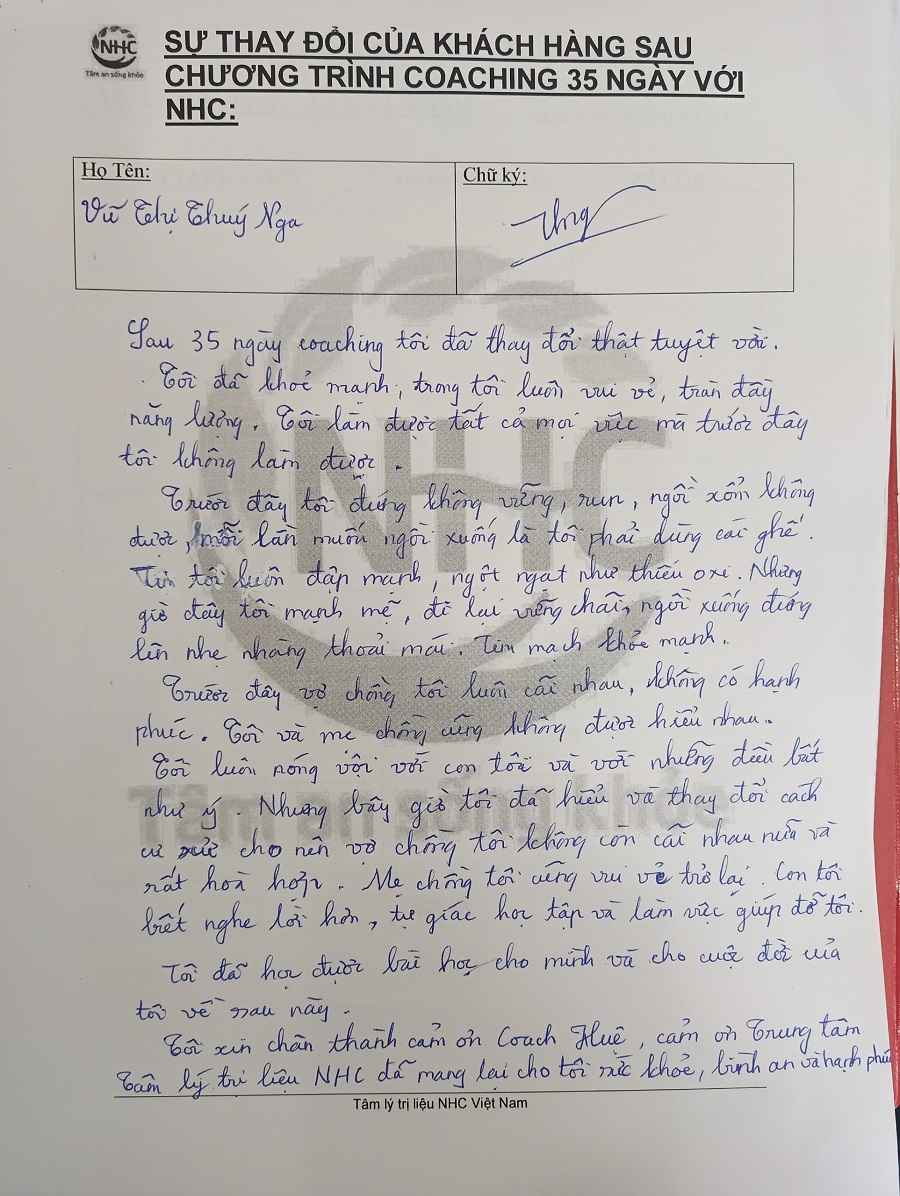 NHC
Tâm an sống khỏe
SỰ THAY ĐỔI CỦA KHÁCH HÀNG SAU
CHƯƠNG TRÌNH COACHING 35 NGÀY VỚI
NHC:
Họ Tên:
Vũ Thị Thuý Nga
Chữ ký:
NHC
Tâm an sống khỏe
Sau 35 ngày coaching tôi đã thay đổi thật tuyệt vời.
Tôi đã khoẻ mạnh, trong tôi luôn vui vẻ, tràn đầy
năng lượng. Tôi làm được tất cả mọi việc mà trước đây
tôi không làm được.
Trước đây tôi đứng không vững, run, ngồi xổm không
được, mỗi lần muốn ngồi xuống là tôi phải dùng cái ghế.
Tim tôi luôn đập mạnh, ngột ngạt như thiếu oxi. Nhưng
giờ đây tôi mạnh mẽ, đi lại vững chãi, ngồi xuống đứng
lên nhẹ nhàng thoải mái. Tim mạch khỏe mạnh.
Trước đây vợ chồng tôi luôn cãi nhau, không có hạnh
phúc. Tôi và mẹ chồng cũng không được hiểu nhau.
Tôi luôn nóng vội với con tôi và với những điều bất
như ý. Nhưng bây giờ tôi đã hiểu và thay đổi cách
cư xử cho nên vợ chồng tôi không còn cãi nhau nữa và
rất hoà hợp. Mẹ chồng tôi cũng vui vẻ trở lại. Con tôi
biết nghe lời hơn, tự giác học tập và làm việc giúp đỡ tôi.
Tôi đã học được bài học cho mình và cho cuộc đời của
tôi về sau này.
Tôi xin chân thành cảm ơn Coach Huê, cảm ơn Trung tâm
Tâm lý trị liệu NHC đã mang lại cho tôi sức khỏe, bình an và hạnh phúc
Tâm lý trị liệu NHC Việt Nam